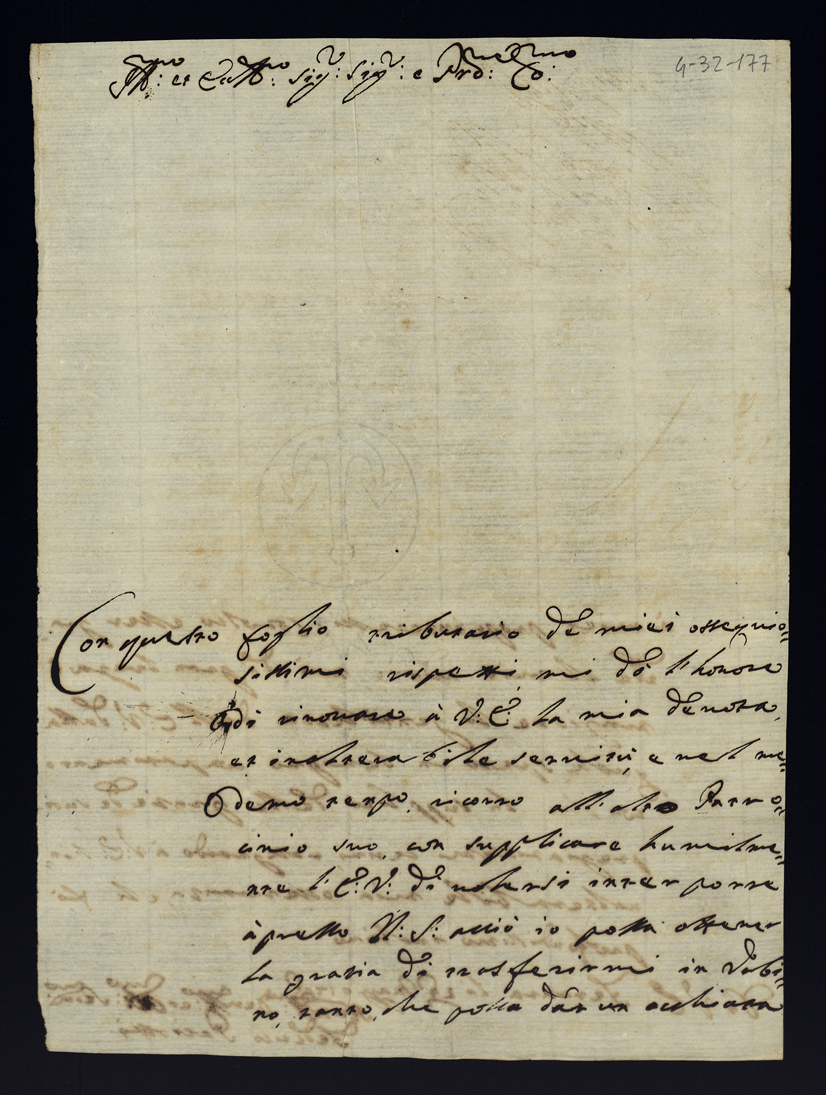 4-32-177
Ill:mo et Ecc:mo Sig:r Sig:r e Prd: Co:
Con questo foglio tributario de miei ossequio=
sissimi rispetti, mi dò l'honore
di rinouare à V: E: la mia deuota,
et inalterabile seruitù, e nel me=
demo tempo, ricorro all'alto Patro=
cinio suo, con supplicare humilme=
nte l'E: V: di uolersi interporre
àpresso N: S: acciò io possa ottener
la gratia di trasferirmi in Vrbi=
no, tanto, che possa dàr un occhiata